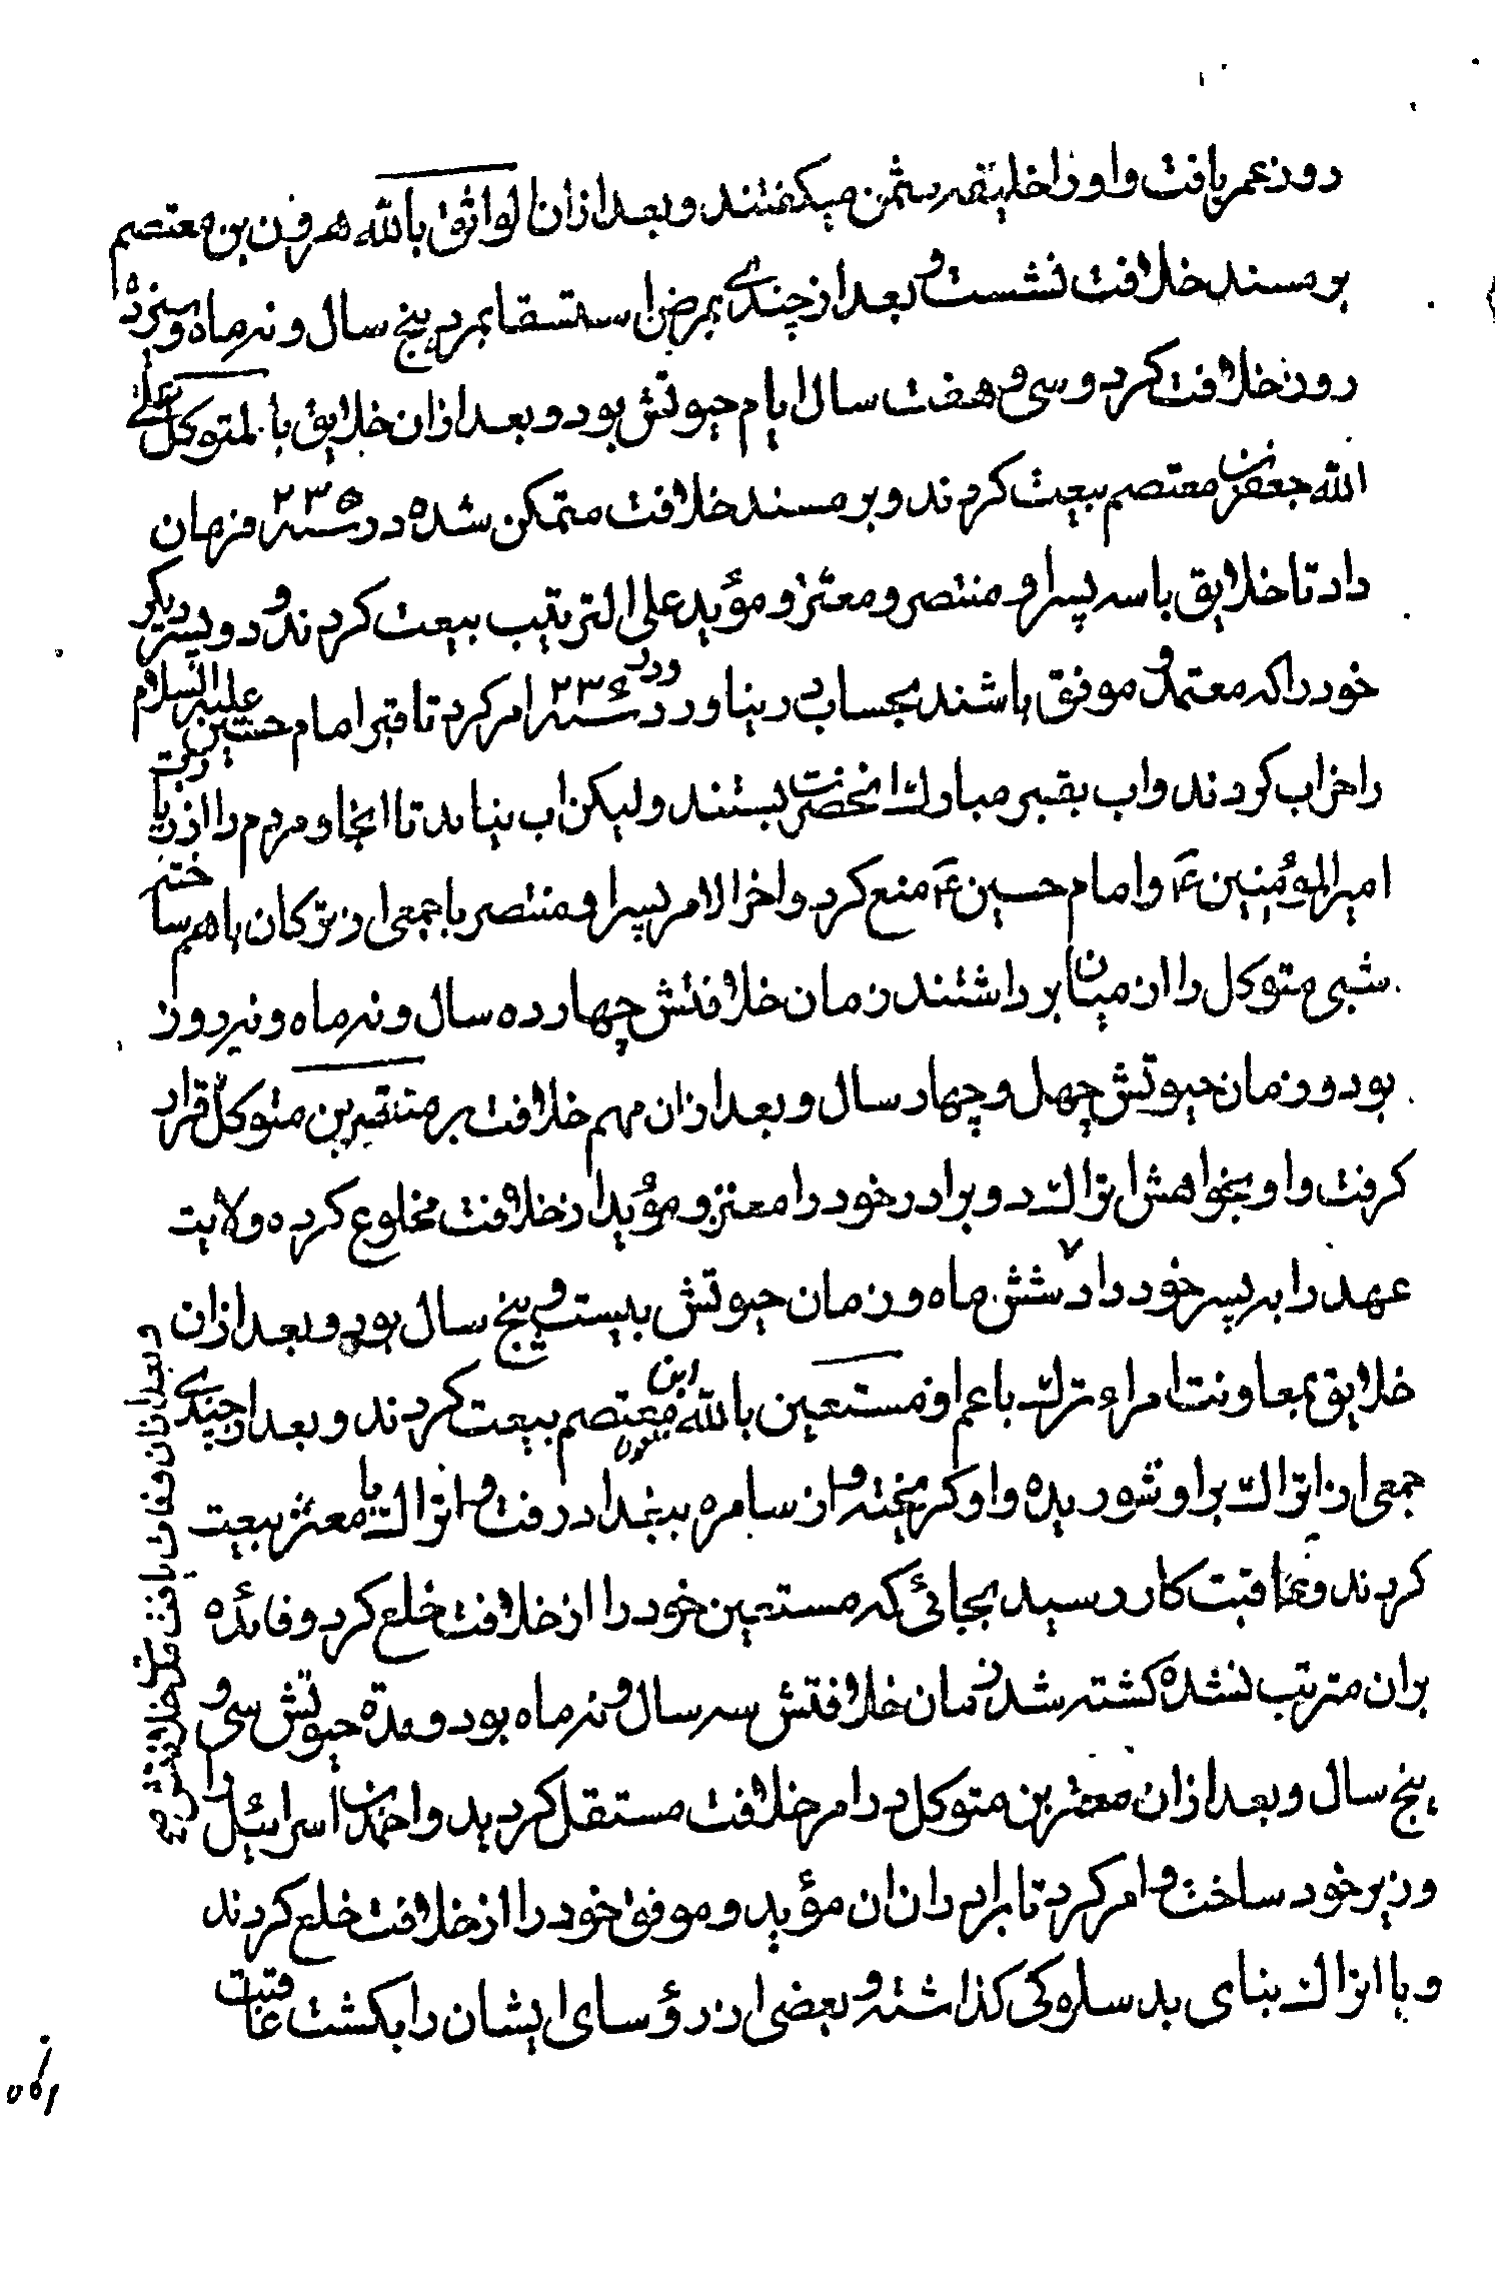 روز عمر یافت و او را خلیفه مثمن میکفتند و بعد ازان الواثق بالله هرون بن معتصم
بر مسند خلافت نشست و بعد از چندی بمرض استسقا بمرد پنج سال و نه ماه و سنزده
روز خلافت کرد و سی و هفت سال ایام حیوتش بود و بعد ازان خلایق با لمتوکل علی
الله جعفر بن معتصم بیعت کردند و بر مسند خلافت متمکن شده در سنه ۲۳۵ فرمان
داد تا خلایق با سه پسر او منتصر و معتز و مؤید علی الترتیب بیعت کردند و دو پسر دیکر
خود را که معتمد و موفق باشند بحساب در نیاورد و در سنه ۲۳۶ امر کرد تا قبر امام حسین علیه السلام
را خراب کردند و اب بقبر مبارک انحضرت بستند ولیکن اب نیامد تا انجا و مردم را از زیارت
امیرالمؤمنین ع و امام حسین ع منع کرد و اخر الامر پسر او منتصر با جمعی از ترکان باهم ساخته
شبی متوکل را از میان بر داشتند زمان خلافتش چهارده سال و نه ماه و نه روز
بود و زمان حیوتش چهل و چهار سال و بعد ازان مهم خلافت بر منتصر بن متوکل قرار
کرفت و او بخواهش اتراک دو برادر خود را معتز و مؤید از خلافت مخلوع کرده ولایت
عهد را به پسر خود داد شش ماه و زمان حیوتش بیست و پنج سال بود و بعد ازان
خلایق بمعاونت امراء ترک با عم او مستعین بالله ابن معتصم بیعت کردند و بعد از چندی
جمعی از اتراک بر او شوریده و او کریخته و از سامره ببغداد رفت و اتراک با معتز بیعت
کردند و عاقبت کار رسید بجائی که مستعین خود را از خلافت خلع کرد و فائده
بران مترتب نشده کشته شد زمان خلافتش سه سال و نه ماه بود و مدة حیوتش سی و
پنج سال و بعد ازان معتز بن متوکل در امر خلافت مستقل کردید و احمد بن اسرائیل را
وزیر خود ساخت و امر کرد تا برادران ان مؤید و موفق خود را از خلافت خلع کردند
و با اتراک بنای بد سلوکی کذاشته و بعضی از رؤسای ایشان را بکشت عاقبت
و بعد ازان وفات یافت مدت خلافتش